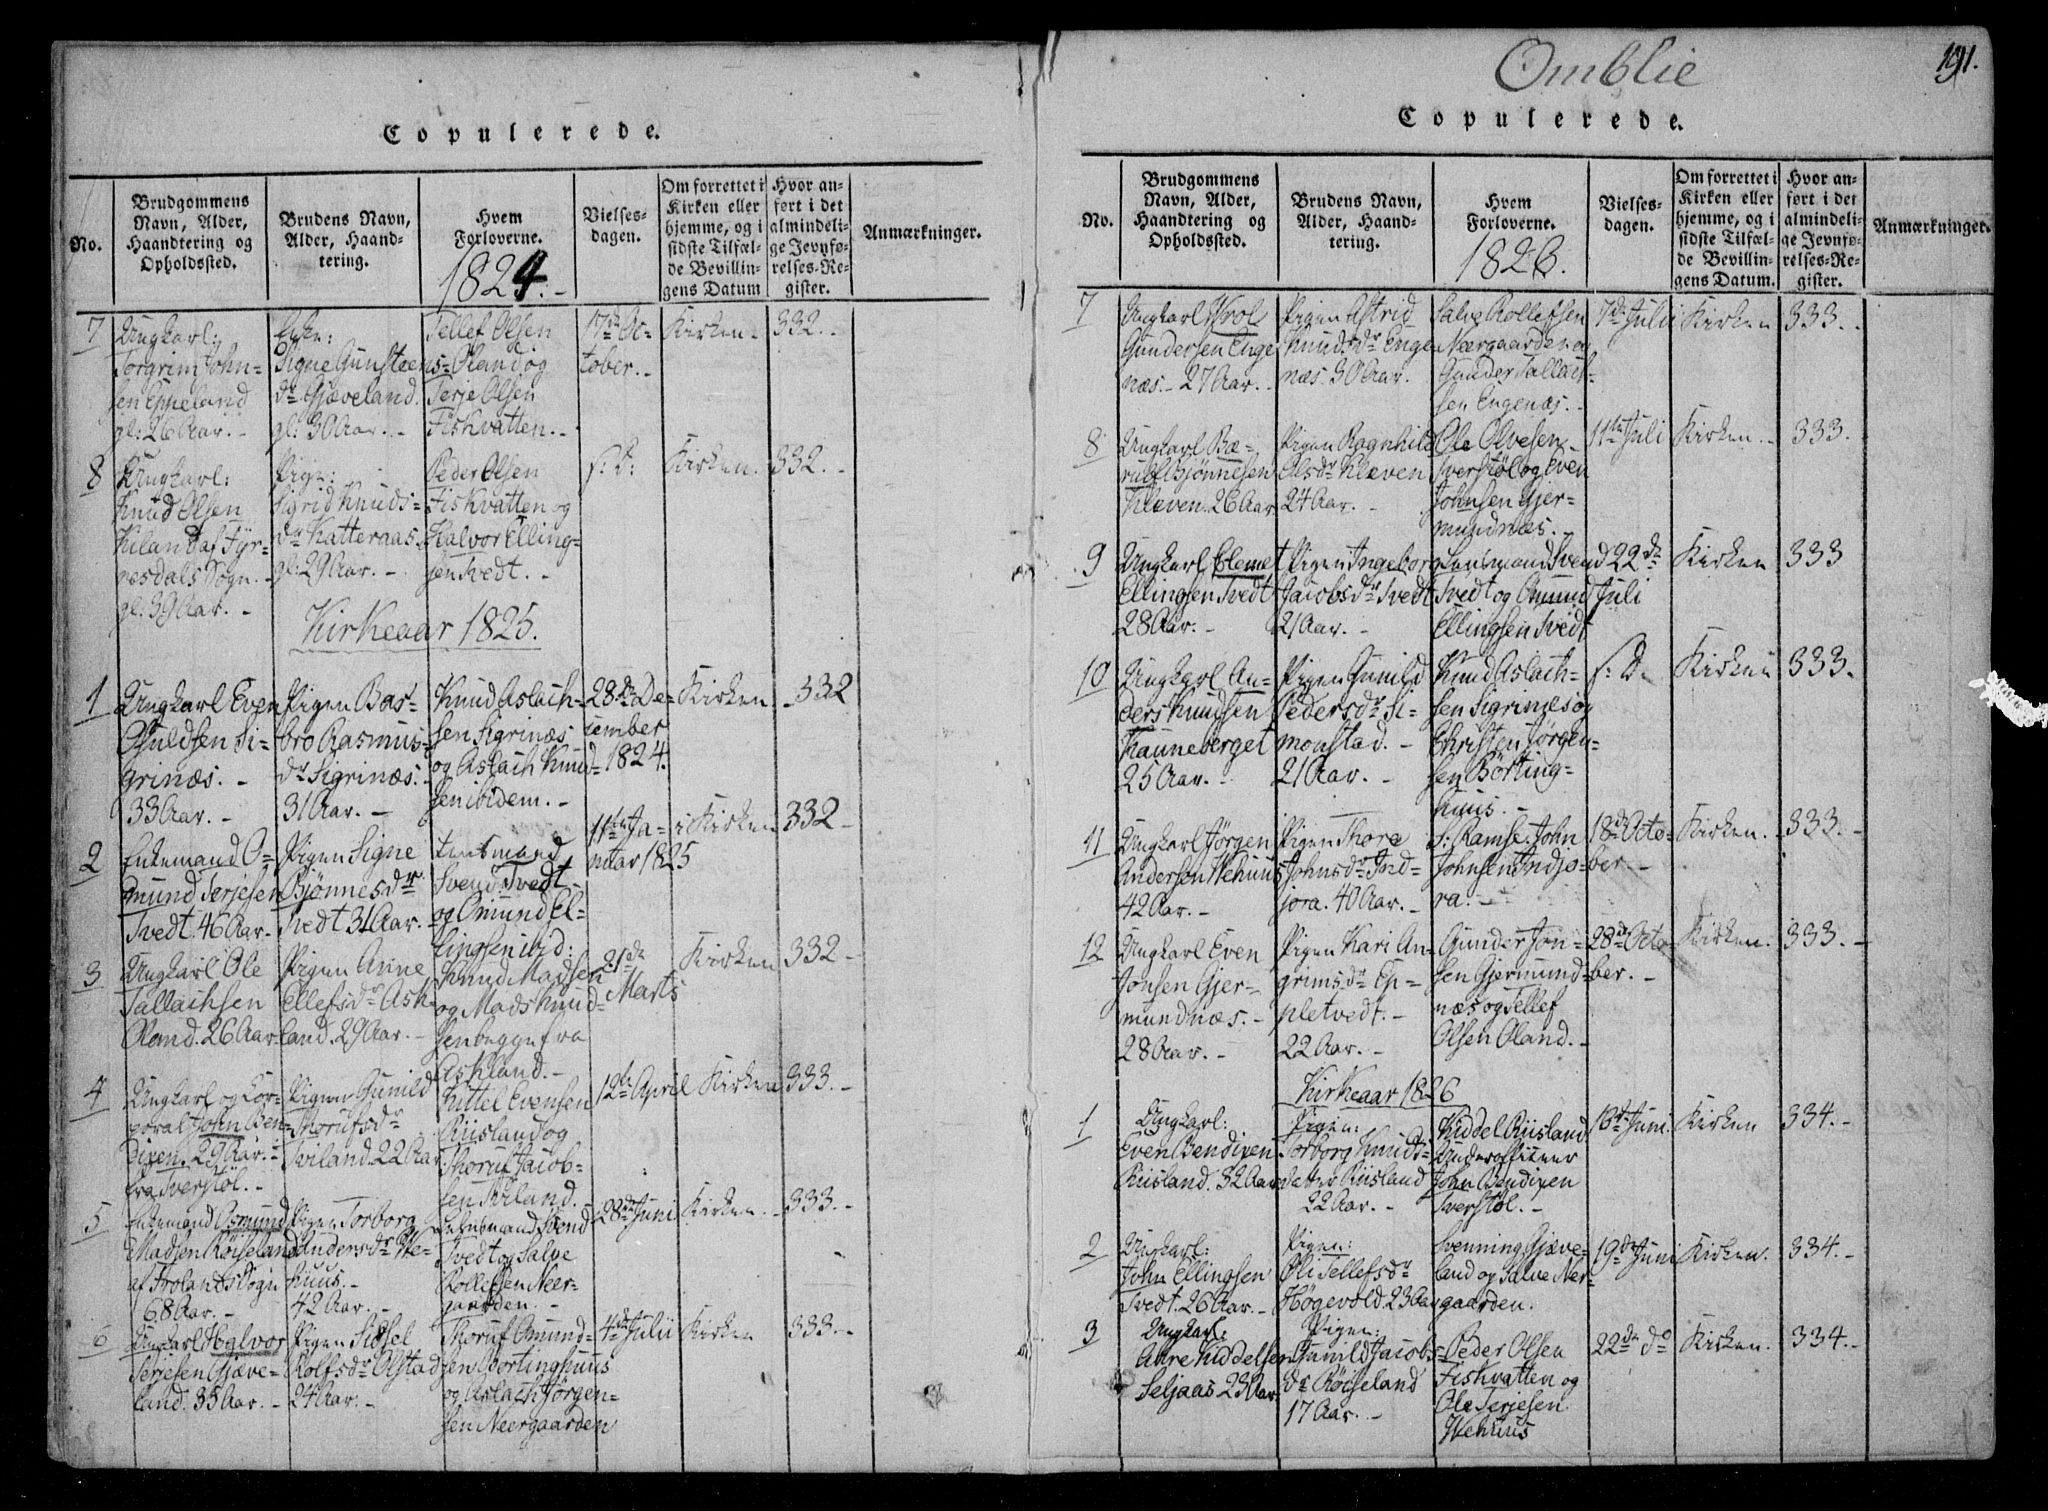 Copulerede.
No.
Brudgommens
Navn, Alder,
Haandtering og
Opholdssted.
Brudens Navn,
Alder, Haand-
tering.
Hvem
Forloverne.
1824.-
Vielses-
dagen.
Om forrettet i
Kirken eller
hjemme, og i
sidste Tilfæl-
de Bevillin-
gens Datum
Hvor an-
ført i det
almindeli-
ge Jevnfø-
relses-Re-
gister.
Anmærkninger.
7
Ungkarl:
Torgrim John-
sen Eppeland
gl: 26 Aar. -
Signe Gunsteens-
dr Gjæveland.
gl: 30 Aar. -
Tellef Olsen
Oland og
Terje Olsen
Fiskvatten. -
17de Oc-
tober. -
Kirken.
332. -
8
Ungkarl:
Knud Olsen
Kiland af Fyr-
nesdals Sogn. -
gl: 39 Aar. -
Pige:
Sigrid Knuds-
dr Katteraas.
gl: 29 Aar. -
Peder Olsen
Fiskvatten og
Halvor Elling-
sen Tvedt. -
s: D:
Kirken.
332. -
Kirkeaar 1825.
1
Ungkarl Even
Guldsen Si-
grinæs. -
33 Aar. -
Pigen Bas-
bro Rasmus-
dr Sigrinæs.
31 Aar. -
Knud Aslach-
sen Sigrinæs
og Aslach Knud-
sen ibidem. -
28de De-
cember
1824.
Kirken.
332
2
Enkemand O-
mund Terjesen
Tvedt. 46 Aar. -
Pigen Signe
Bjønnesdr
Tvedt 31 Aar. -
Lensmand
Svend Tvedt
og Omund El-
lingsen ibid:
11te Ja-
nuar 1825
i Kirken
332 -
3
Ungkarl Ole
Tallachsen
Oland. 26 Aar.
Pigen Anne
Ellefsdr Ask-
land. 29 Aar. -
Knud Madsen
og Mads Knud-
sen begge fra
Askland. -
21de
Marts
Kirken
332 -
4
Ungkarl og Cor-
poral John Ben-
dixen. 29 Aar. -
fra Tverstøl. -
Pigen Gunild
Thorufsdr
Tviland. 22 Aar
Kittel Evensen
Riisland og
Thoruf Jacob-
sen Tviland.
12te April
Kirken
333. -
5
Enkemand Osmund
Madsen Røiseland
af Frolands Sogn
68 Aar. -
Pigen Torborg
Andersdr We-
huus. -
42 Aar. -
Lensmand Svend
Tvedt og Salve
Rollefsen Neer-
gaarden. -
28de Juni
Kirken.
333. -
6
Ungkarl Halvor
Terjesen Gjæve-
land. 35 Aar. -
Pigen Sidsel
Rolfsdr Olstad
24 Aar. -
Thoruf Omund-
sen Bortinghuus
og Aslach Jørgen-
sen Neergaarden
4de Julii
Kirken
333. -
Omblie
191.
Copulerede.
No.
Brudgommens
Navn, Alder,
Haandtering og
Opholdssted.
Brudens Navn,
Alder, Haand-
tering.
Hvem
Forloverne.
1826.
Vielses-
dagen.
Om forrettet i
Kirken eller
hjemme, og i
sidste Tilfæl-
de Bevillin-
gens Datum.
Hvor an-
ført i det
almindeli-
ge Jevnfø-
relses-Re-
gister.
Anmærkninger.
7
Ungkarl Wrol
Gundersen Enge
næs. - 27 Aar. -
Pigen Astrid
Knudsdr Enge
næs. 30 Aar.
Salve Rollefsen
Neergaarden og
Gunder Tallach-
sen Engenæs. -
7de Julii
Kirken
333. -
8
Ungkarl Bæ-
rulf Bjønnesen
Kleven. 26 Aar
Pigen Ragnhild
Olsdr Kleven
24 Aar. -
Ole Olvesen
Tverstøl og Even
Johnsen Gjer-
mundnæs. -
11te Juli
Kirken. -
333.
9
Ungkarl Clemet
Ellingsen Tvedt
28 Aar. -
Pigen Ingeborg
Jacobsdr Tvedt
21 Aar. -
Lensmand Svend
Tvedt og Omund
Ellingsen Tvedt
22de
Juli
Kirken
333
10
Ungkarl An-
ders Knudsen
Hauneberget
25 Aar. -
Pigen Gunild
Pedersdr Si-
monstad. -
21 Aar. -
Knud Aslach-
sen Sigrinæs og
Christen Jørgen-
sen Børting-
huus. -
s: D.
Kirken
333.
11
Ungkarl Jørgen
Andersen Wehuus
42 Aar. -
Pigen Thore
Johnsdr Ind-
jora. 40 Aar. -
S: Ramse. John
Johnsen Indjo-
ra. -
18de Octo-
ber. -
Kirken.
333. -
12
Ungkarl Even
Jonsen Gjer-
mundnæs. -
28 Aar. -
Pigen Kari An-
grimsdr Ep-
pletvedt. -
22 Aar. -
Gunder Jon-
sen Gjermund-
næs og Tellef
Olsen Oland. -
28de Octo
ber. -
Kirken.
333. -
Kirkeaar 1826
1
Ungkarl:
Even Bendixen
Riisland. 32 Aar
Pigen:
Torborg Knuds-
datter Riisland
22 Aar. -
Kiddel Riisland
Underofficeer
John Bendixen
Tverstøl. -
18de Juni.
Kirken
334. -
2
Ungkarl:
John Ellingsen
Tvedt. 26 Aar. -
Pigen:
Oli Tellefsdr
Høgevold. 23 Aar
Svenning Gjæve-
land og Salve Ner-
gaarden.
19de Juni
Kirken.
334. -
3
Ungkarl:
Anre Kiddelsen
Seljaas 23 Aar
Pigen:
Gunild Jacobs-
dr Røiseland
17 Aar. -
Peder Olsen
Fiskvatten og
Ole Terjesen
Wehuus
22de do
Kirken.
334. -